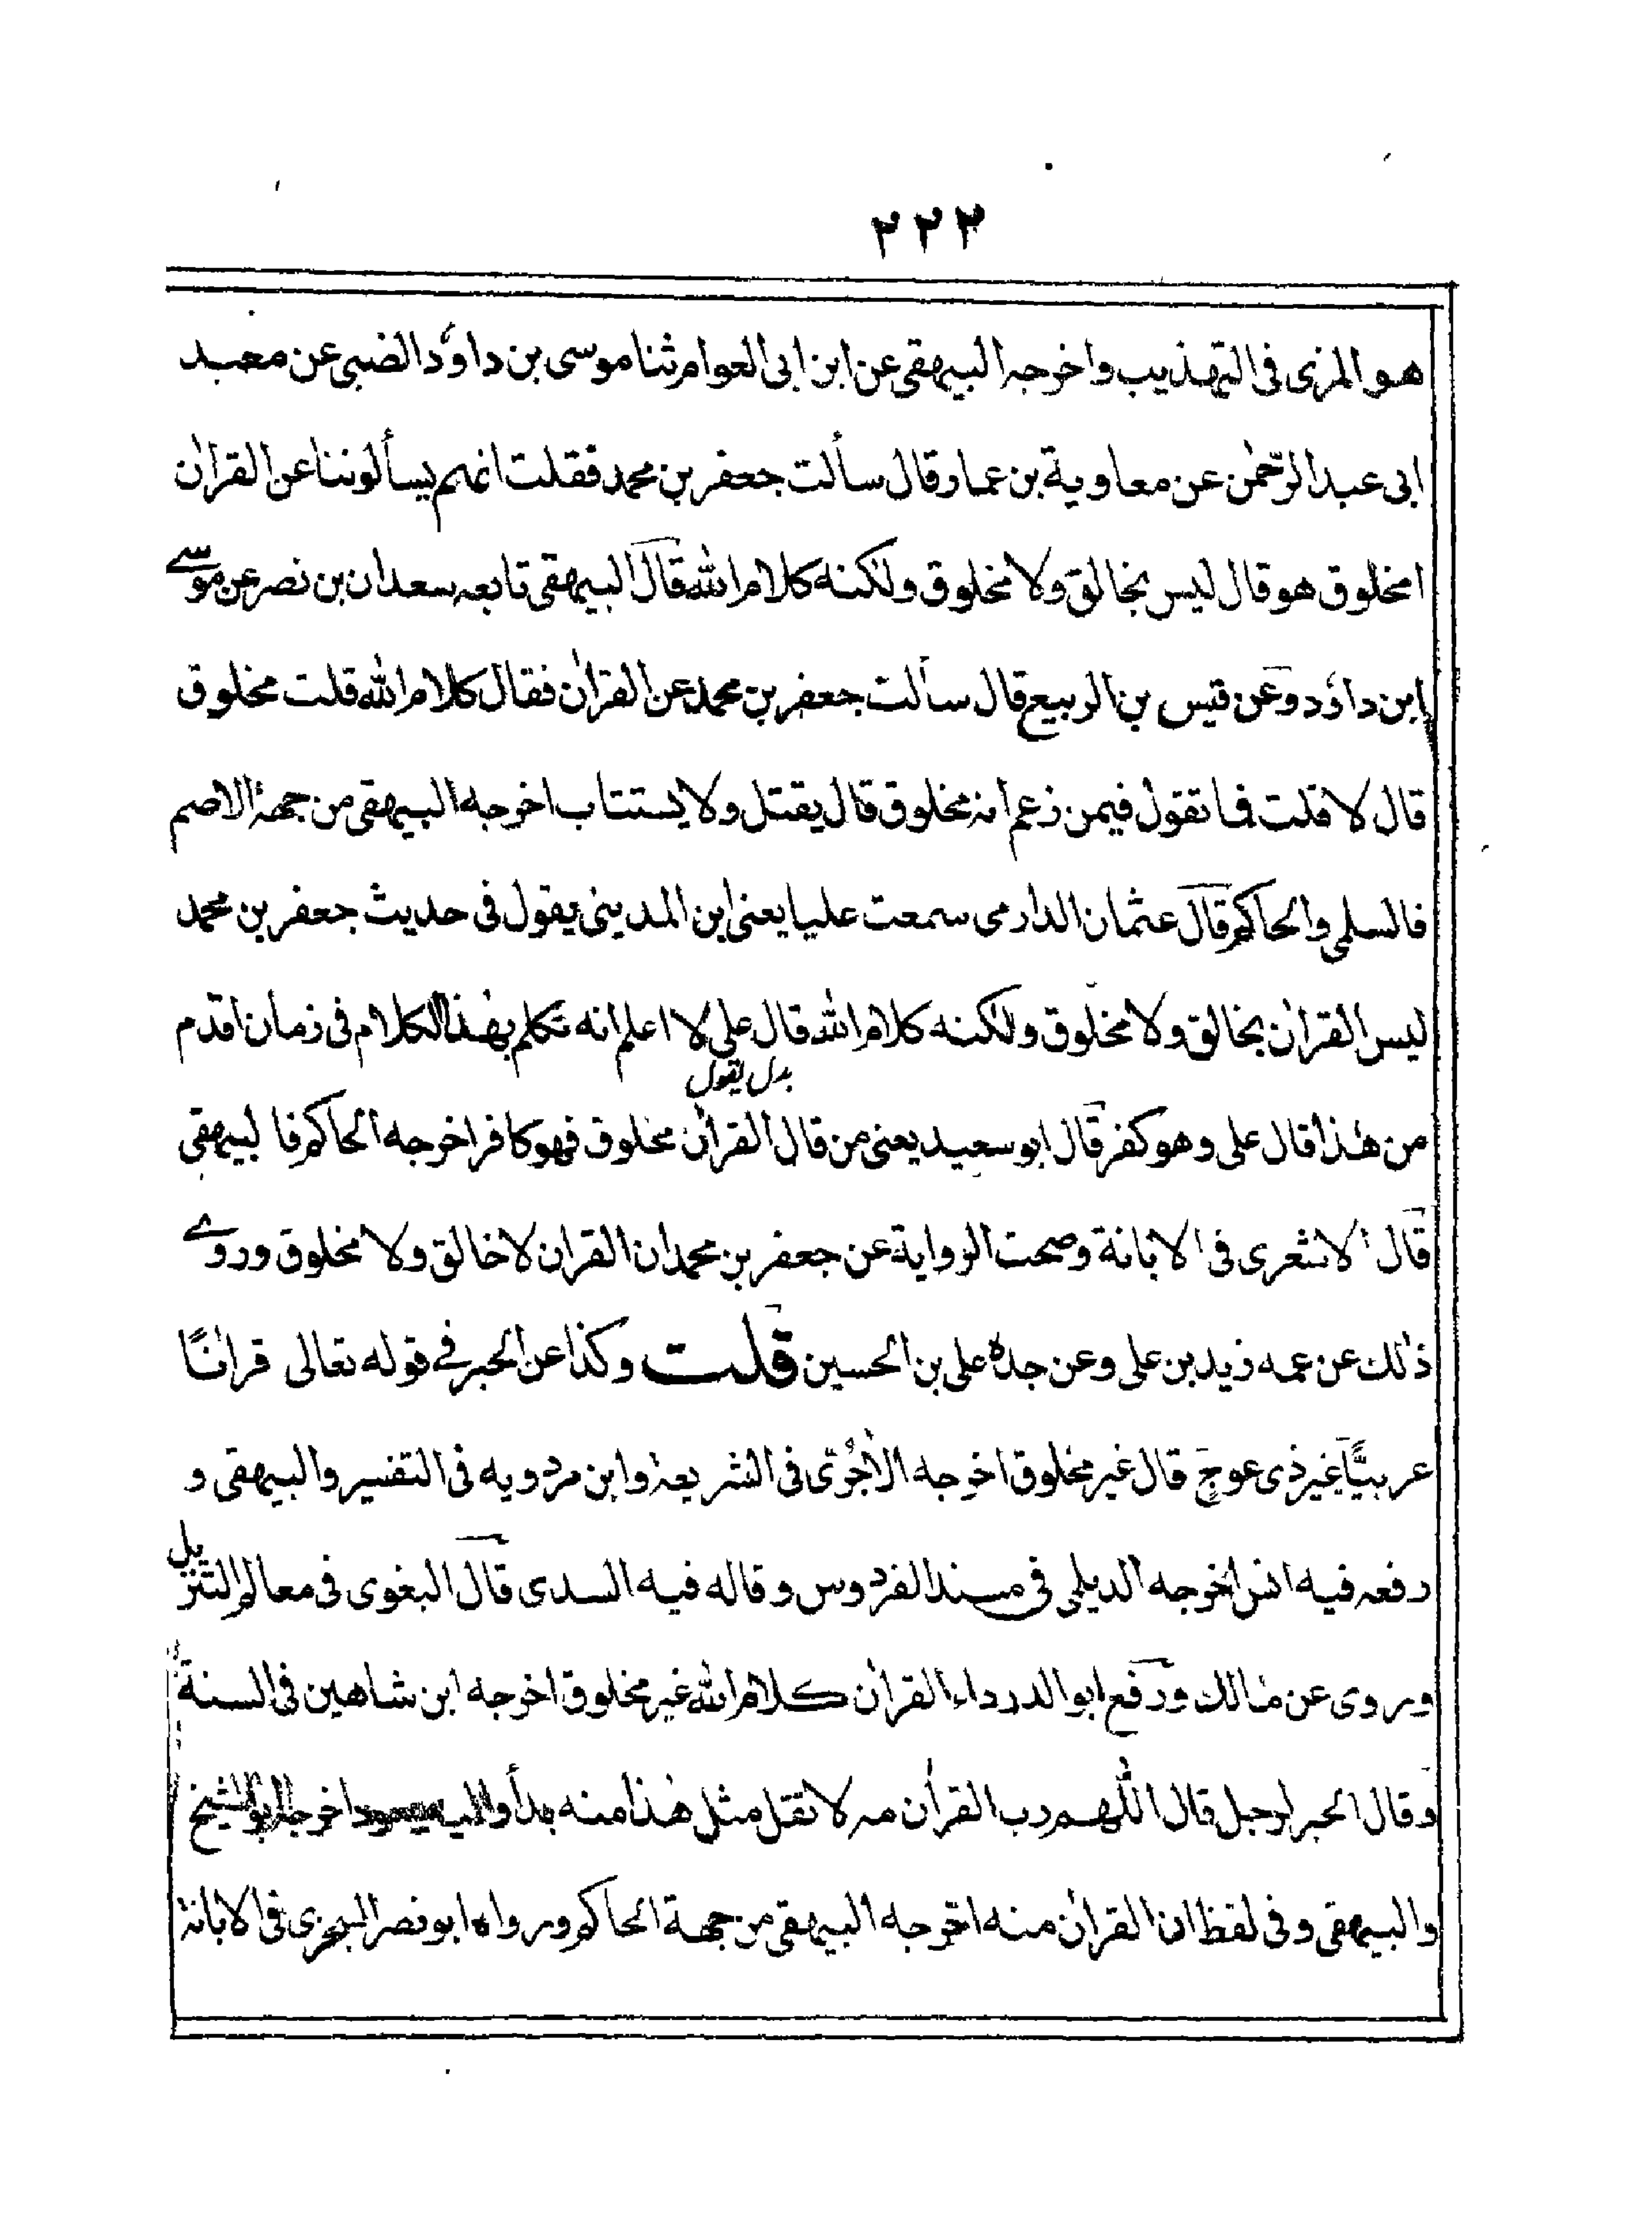 ٢٢٢
هو المزى فى التهذيب واخرجه البيهقى عن ابن ابى العوام ثنا موسى بن داؤد الضبى عن معبد
ابى عبد الرحمٰن عن معاوية بن عمار قال سألت جعفر بن محمد فقلت انهم يسألوننا عن القراٰن
امخلوق هو قال ليس بخالق ولا مخلوق ولٰكنه كلام الله قال البيهقى تابعه سعدان بن نصر عن موسے
ابن داؤد وعن قيس بن الربيع قال سألت جعفر بن محمد عن القراٰن فقال كلام الله قلت مخلوق
قال لا قلت فما تقول فيمن زعم انه مخلوق قال يقتل ولا يستتاب اخرجه البيهقى من جهة الاصم
فالسلمى والحاكم قال عثمان الدارمى سمعت عليا يعنى ابن المدينى يقول فى حديث جعفر بن محمد
ليس القراٰن بخالق ولا مخلوق ولٰكنه كلام الله قال على لا اعلم انه تكلم بهٰذا الكلام فى زمان اقدم
بدل يقول
من هٰذا قال على وهو كفر قال ابو سعيد يعنى من قال القراٰن مخلوق فهو كافر اخرجه الحاكم فالبيهقى
قال الاشعرى فى الابانة وصحت الرواية عن جعفر بن محمد ان القراٰن لا خالق ولا مخلوق وروے
ذٰلك عن عمه زيد بن على وعن جده على بن الحسين قلت وكذا عن الحبر فے قوله تعالى قراٰنًا
عربيًّا غير ذى عوج قال غير مخلوق اخرجه الاٰجُرّى فى الشريعة وابن مردويه فى التفسير والبيهقى و
رفعه فيه انس اخرجه الديلمى فى مسند الفردوس وقاله فيه السدى قال البغوى فى معالم التنزيل
وروى عن مالك ورفع ابو الدرداء القراٰن كلام الله غير مخلوق اخرجه ابن شاهين فى السنة
وقال الحبر لرجل قال اللّٰهم رب القراٰن مه لا تقل مثل هٰذا منه بدأ واليه يعود اخرجه ابو الشيخ
والبيهقى وفى لفظ ان القراٰن منه اخرجه البيهقى من جهة الحاكم ورواه ابو نصر السجزى فى الابانة